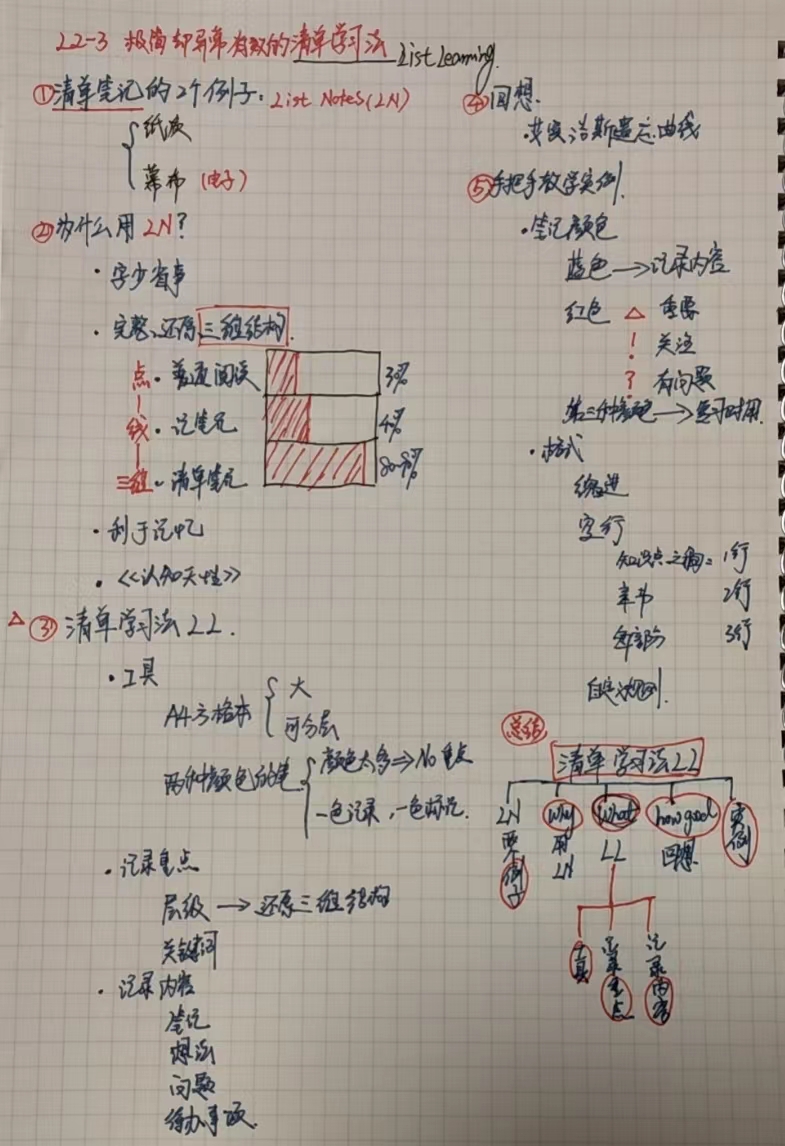 LL-3 极简却异常有效的清单学习法 List Learning.
①清单笔记的2个例子: List Notes(LN)
纸质
幕布 (电子)
②为什么用LN?
· 字少省事
· 完整、还原三维结构.
点 · 普通阅读 3%
线 · 记笔记 4%
三维 · 清单笔记
· 利于记忆
· 《认知天性》
△③ 清单学习法LL.
· 工具
A4方格本
大
可分层
两种颜色的笔
颜色太多⇒No重点
一色记录,一色标记.
· 记录重点
层级 → 还原三维结构
关键词
· 记录内容
笔记
想法
问题
待办事项.
④回想.
·艾宾浩斯遗忘曲线
⑤手把手教学实例.
· 笔记颜色
蓝色 → 记录内容
红色 △ 重要
! 关注
? 有问题
第三种颜色 → 复习时用.
· 格式
缩进
空行
知识点之间: 1行
章节 2行
每部分 3行
自定规则.
总结
清单学习法LL
LN两例子
why用LN
what LL
工具
记录重点
记录内容
how good 回想
实例